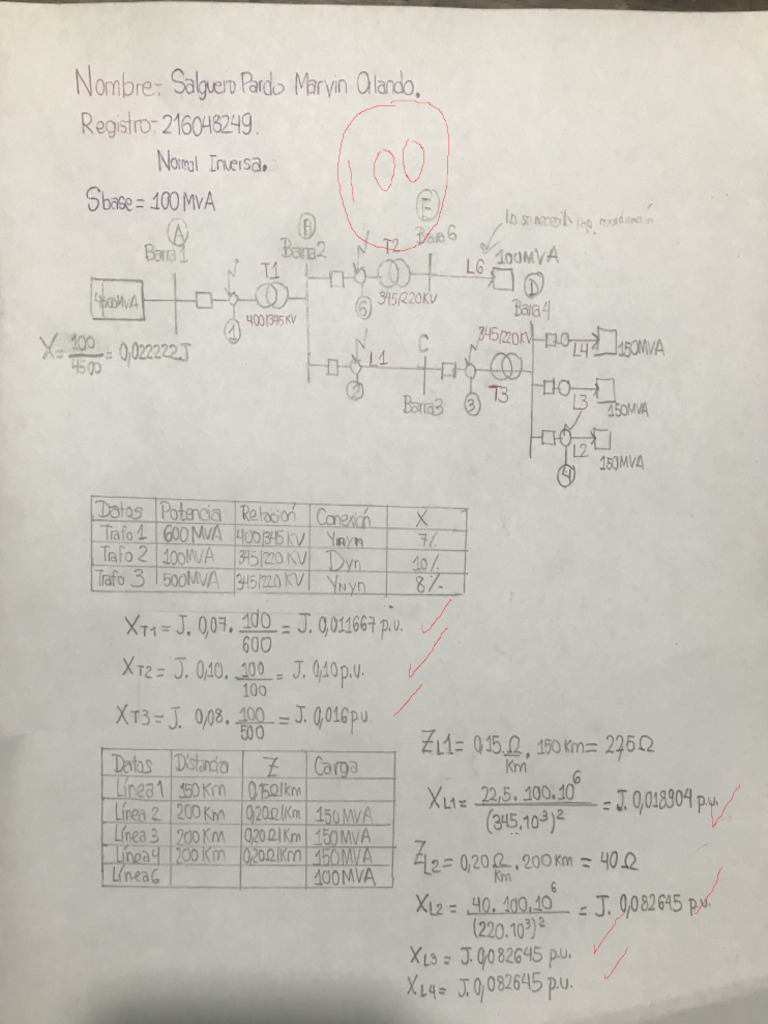 Nombre:- Salguero Pardo Marvin Orlando.
Registro:- 216048249.
Normal Inversa.
Sbase = 100 MVA
A
Barra 1
B
Barra2
E
Barra 6
T2
100MVA
L6
D
Barra4
4500MVA
T1
400/345 KV
1
345/220KV
5
X = 100/4500 = 0,022222J
L1
2
C
Barra3
345/220KV
T3
3
L4
150MVA
L3
150MVA
L2
150MVA
4
Datos Potencia Relación Conexión X
Trafo 1 600 MVA 400/345 KV Ynyn 7%
Trafo 2 100MVA 345/220 KV Dyn 10%
Trafo 3 500MVA 345/220 KV YNyn 8%
XT1 = J. 0,07. 100/600 = J. 0,011667 p.u.
XT2 = J. 0,10. 100/100 = J. 0,10 p.u.
XT3 = J. 0,08. 100/500 = J. 0,016 p.u
Datos Distancia Z Carga
Línea 1 150 Km 0,15Ω/km
Línea 2 200 Km 0,20Ω/Km 150MVA
Línea 3 200 Km 0,20Ω/Km 150MVA
Línea 4 200 Km 0,20Ω/Km 150MVA
Línea 6 100MVA
ZL1 = 0,15 Ω/Km . 150 Km = 22,5 Ω
XL1 = 22,5. 100.10⁶/(345.10³)² = J. 0,018904 p.u.
ZL2 = 0,20 Ω/Km . 200 km = 40 Ω
XL2 = 40. 100.10⁶/(220.10³)² = J. 0,082645 p.u.
XL3 = J. 0,082645 p.u.
XL4 = J. 0,082645 p.u.